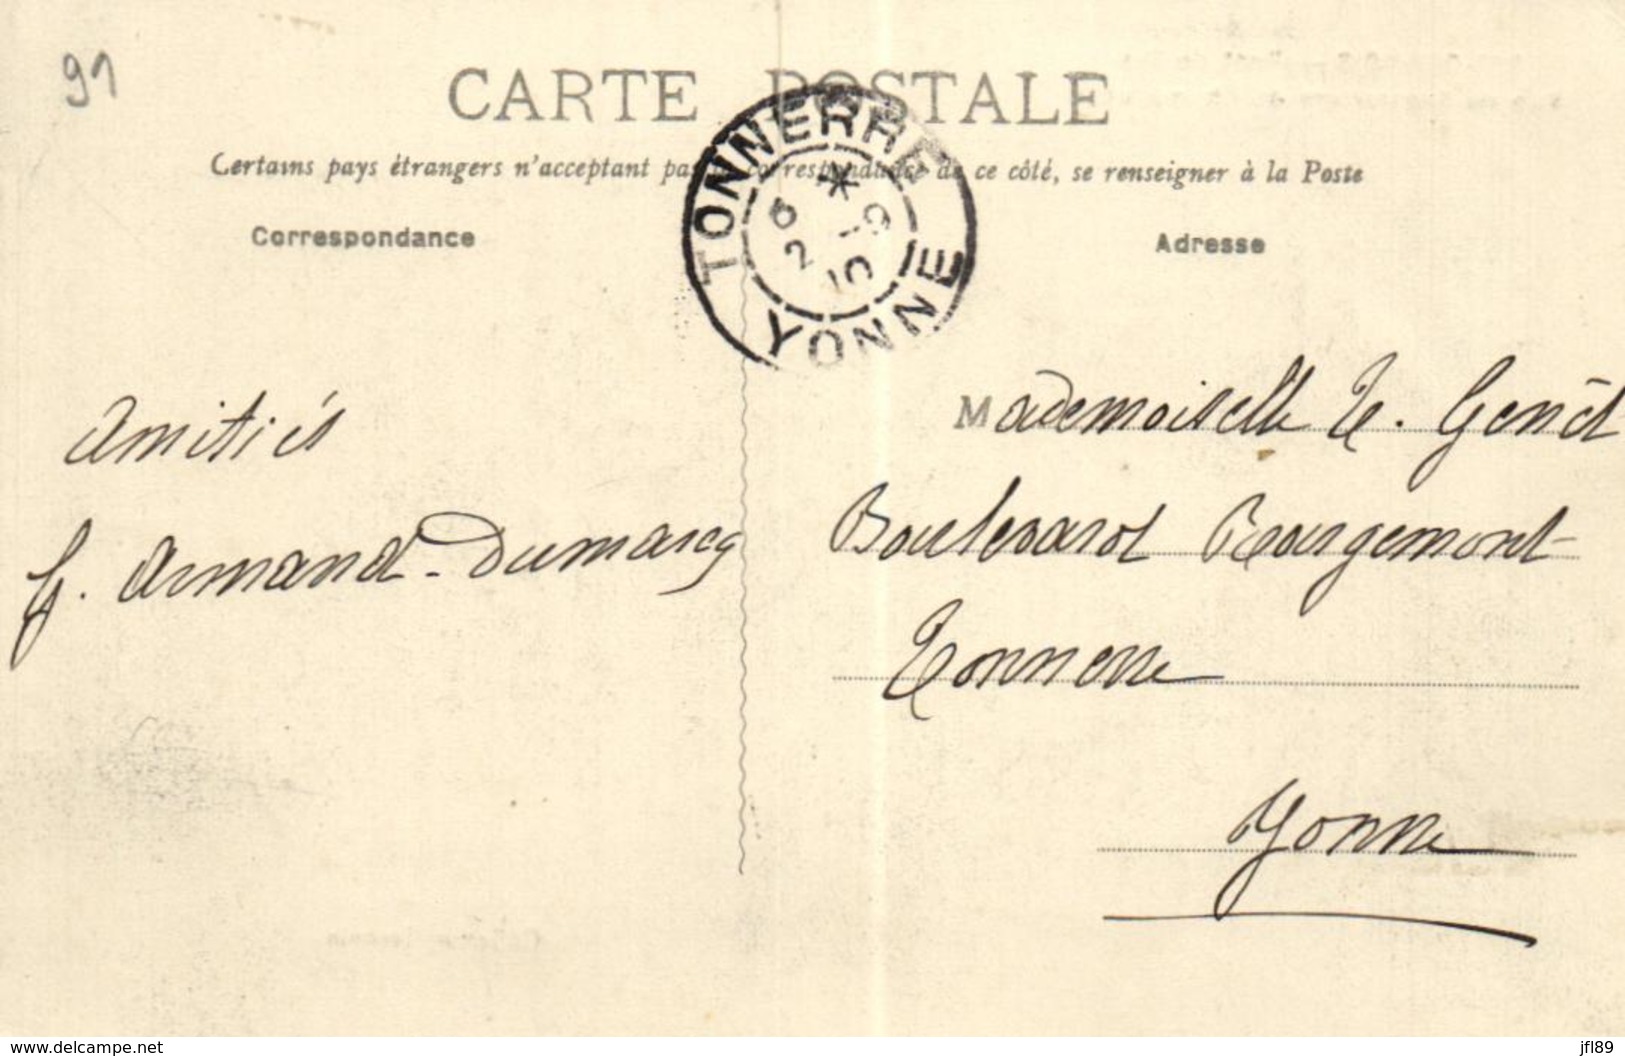 91
CARTE POSTALE
Certains pays étrangers n'acceptant pas la correspondance de ce côté, se renseigner à la Poste
TONNERRE
YONNE
6
2 -9
10
Correspondance
Adresse
Amitiés
Armand-Dumarcq
Mademoiselle Genêt
Boulevard Rougemont
Tonnerre
Yonne
www.delcampe.net
jfl89